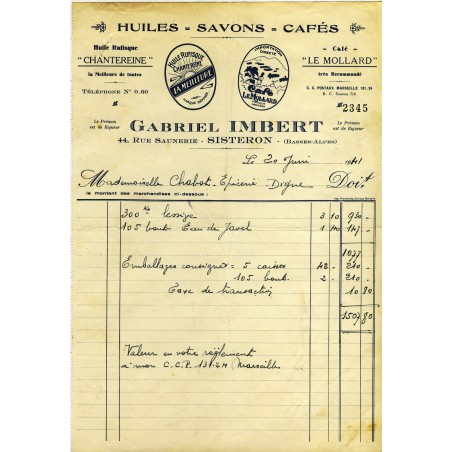 HUILES = SAVONS = CAFÉS
Huile Rufisque
"CHANTEREINE"
la Meilleure de toutes
TÉLÉPHONE N° 0.60
HUILE RUFISQUE
CHANTEREINE
LA MEILLEURE
IMPORTATION
DIRECTE
Café
LE MOLLARD
- Café -
"LE MOLLARD"
très Recommandé
C. C. POSTAUX MARSEILLE 131.24
R. C. Sisteron
2345
Le Prénom
est de Rigueur
GABRIEL IMBERT
Le Prénom
est de Rigueur
44, RUE SAUNERIE - SISTERON - (BASSES-ALPES)
Le 20 Juin 1941
Mademoiselle Chabot - Epicerie - Digne Doit
le montant des marchandises ci-dessous :
300 Ko lessive 3 10 930 -
105 bout. Eau de Javel 1 40 147 -
1077
Emballages consignés = 5 caisses 42 - 210 -
105 bout. 2 - 210 -
Taxe de transaction 10 80
1507 80
Valeur en votre règlement
à mon C.C.P. 131-24 Marseille